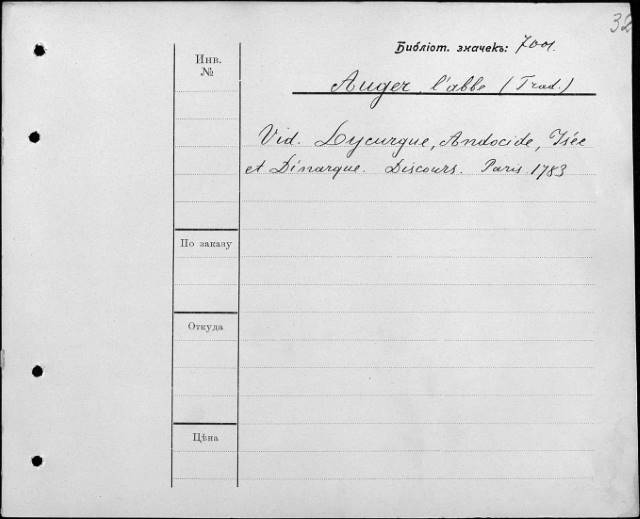 32
Библіот. значекъ: 7001.
Инв.
№
Auger l'abbe (Trad.)
Vid. Lycurgue, Andocide, Isée
et Dinarque. Discours. Paris. 1783
По заказу
Откуда
Цѣна